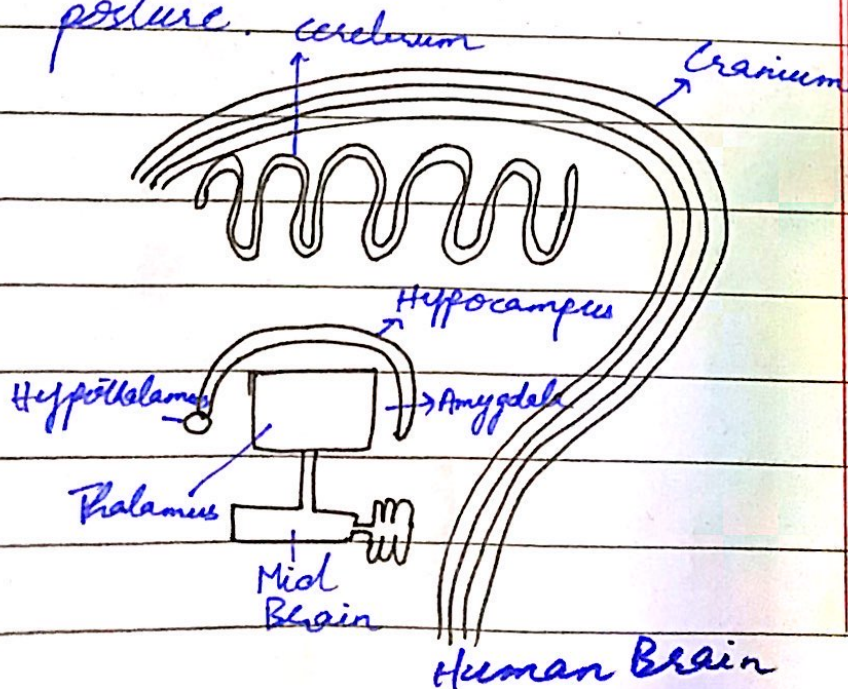 posture.
cerebrum
Cranium
Hyppocampus
Hypothalamus
Amygdala
Thalamus
Mid
Brain
Human Brain